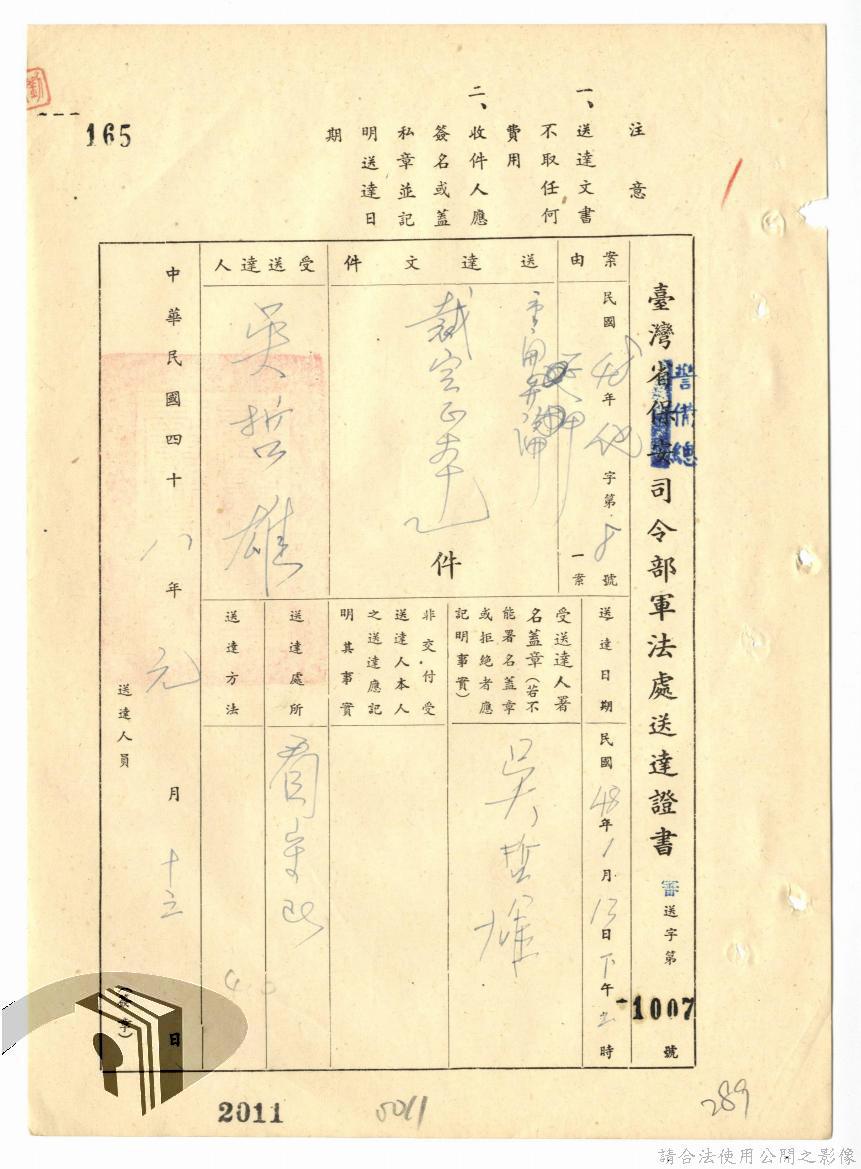 注意
一、送達文書
不取任何
費用
二、收件人應
簽名或蓋
私章並記
明送達日
期
165
臺灣省保安司令部軍法處送達證書
警備總
審送字第
1007
號
案由
民國48年他字第8號一案
送達文件
裁定正本
件
受送達人
吳哲雄
送達日期
民國48年1月13日下午 時
受送達人署
名蓋章(若不
能署名蓋章
或拒絕者應
記明事實)
吳哲雄
非交付受
送達人本人
之送達應記
明其事實
送達處所
看守所
送達方法
中華民國四十八年元月十三日
送達人員
(簽字)
2011
5011
289
請合法使用公開之影像